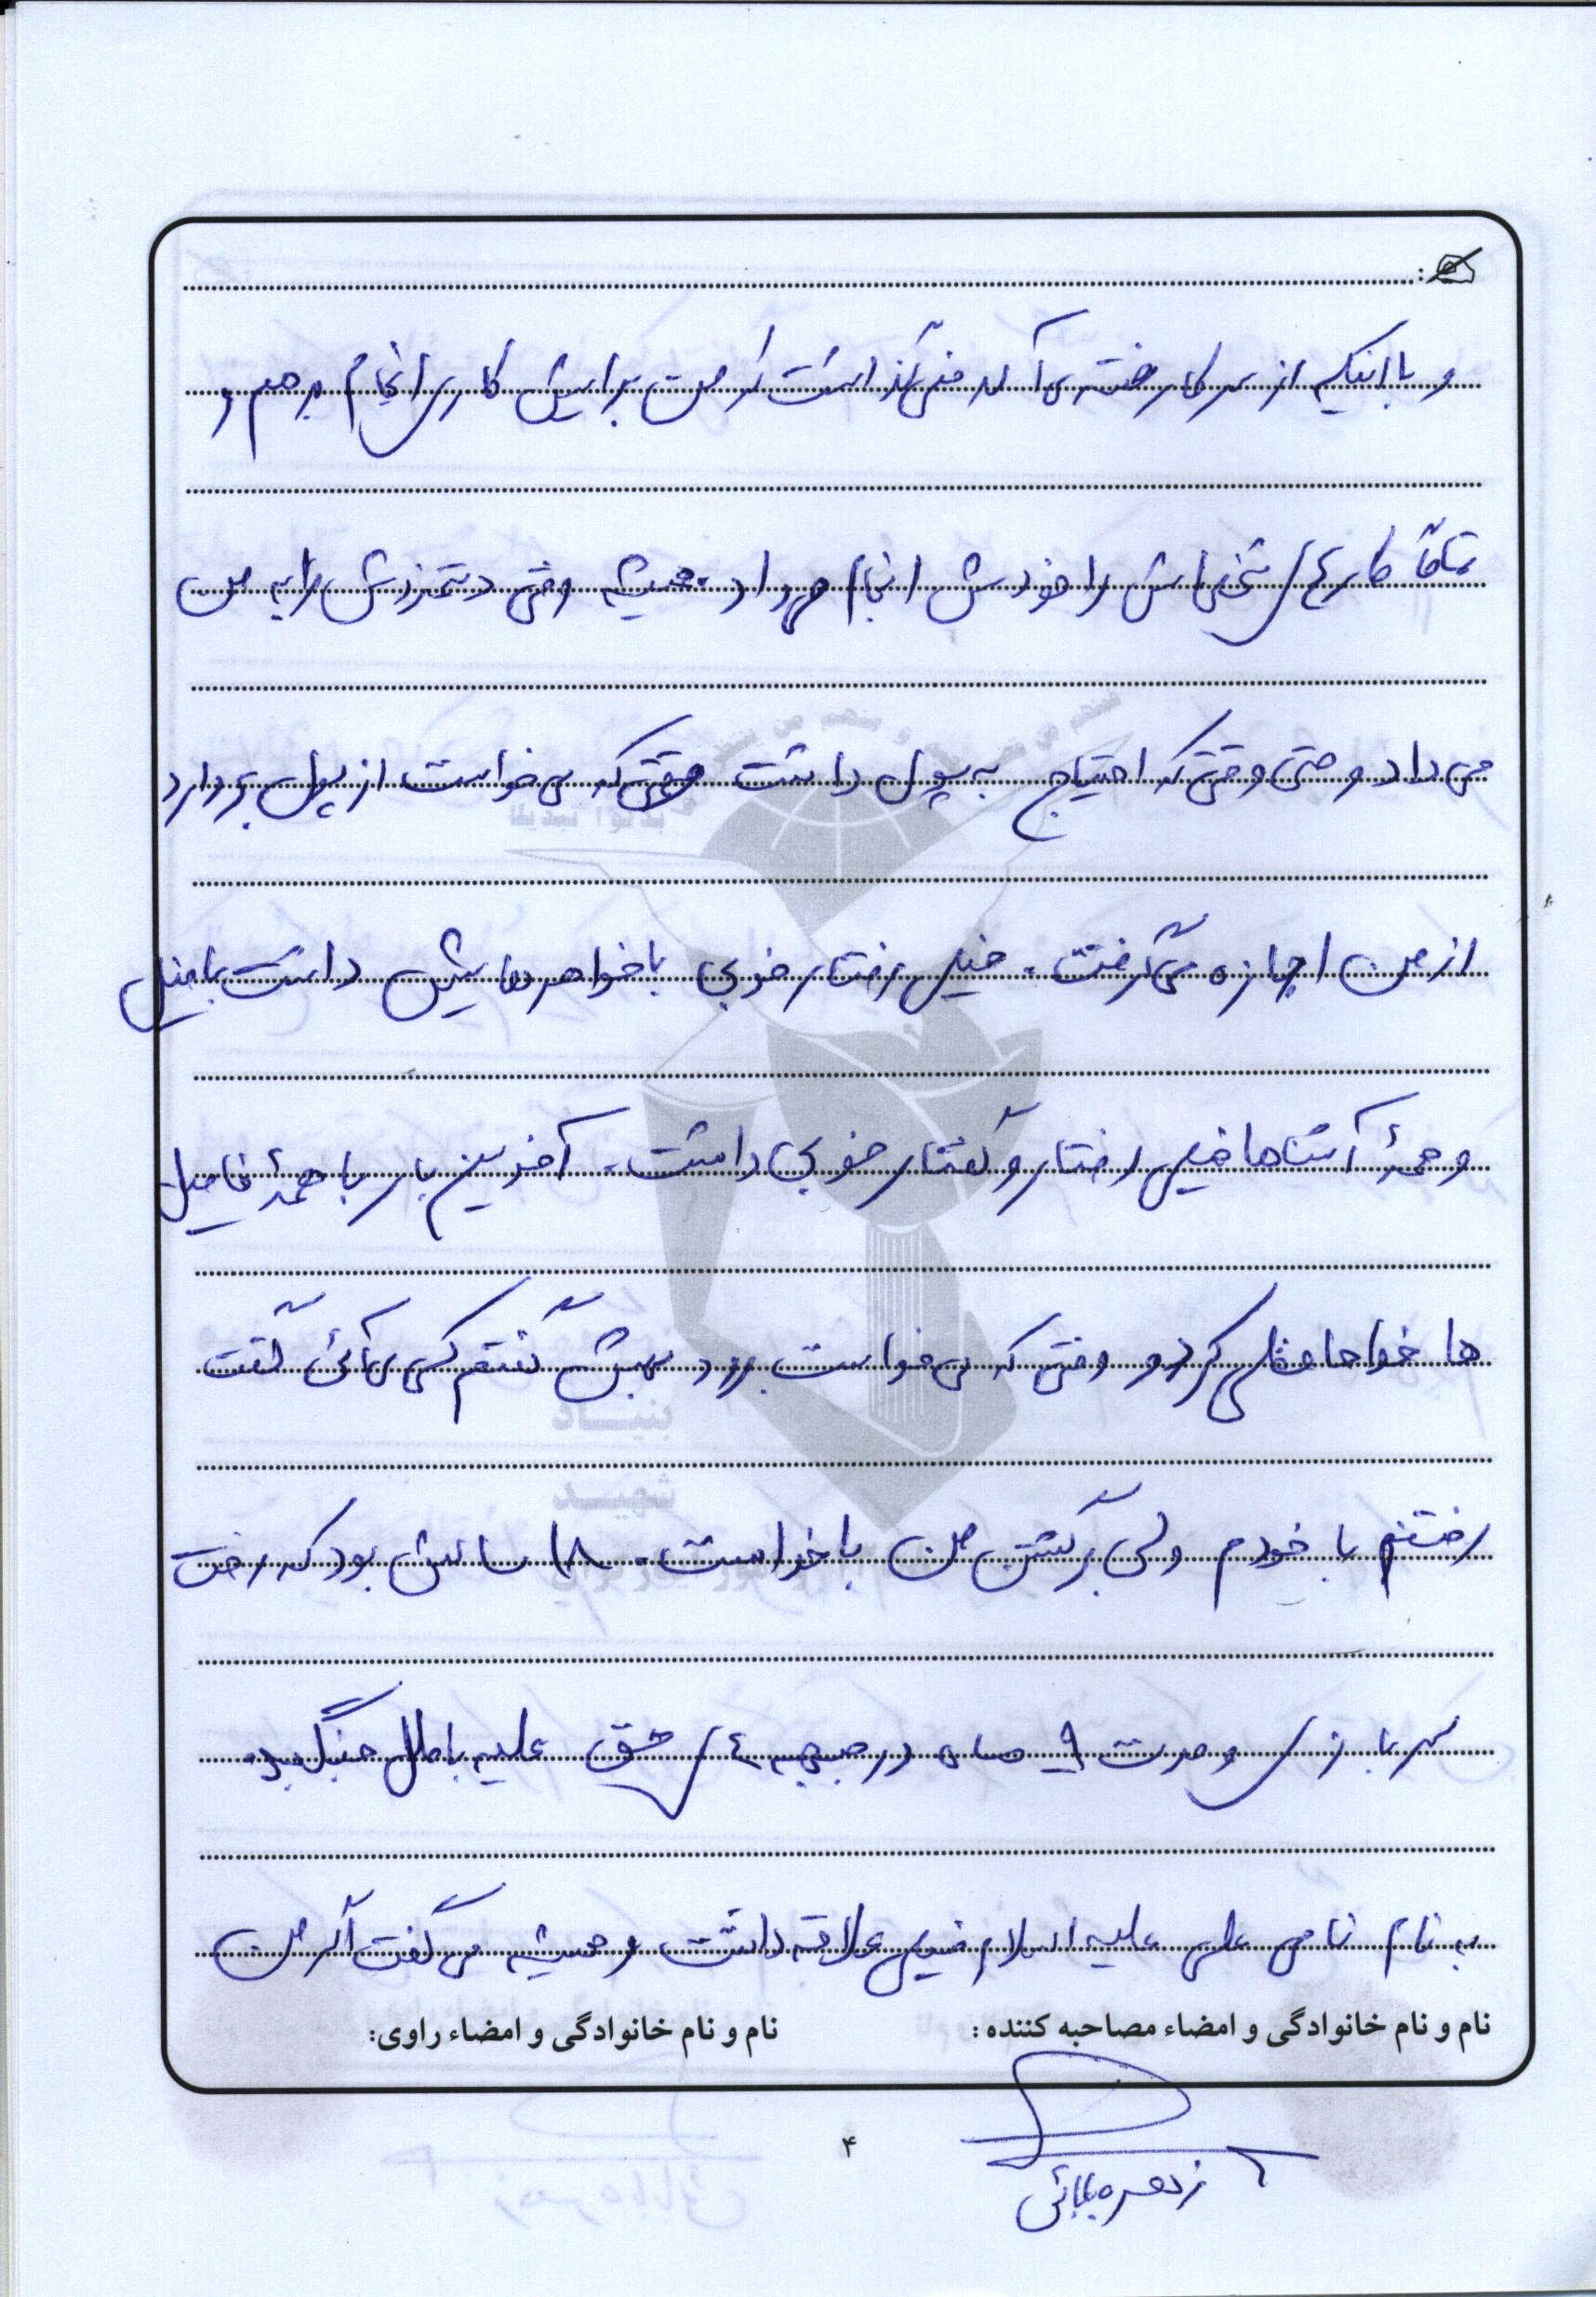 و با اینکه از سر کار خسته می آمد نمی گذاشت که من برایش کاری انجام بدهم و
تماماً کارهای شخصی اش را خودش انجام میداد. همیشه وقتی دستمزدش را به من
می داد و حتی وقتی که احتیاج به پول داشت وقتی که می خواست از پول بردارد
از من اجازه می گرفت. خیلی رفتار خوبی با خواهرهایش داشت با فامیل
و همهٔ آشناها خیلی رفتار و گفتار خوبی داشت. آخرین بار با همهٔ فامیل
ها خداحافظی کرد و وقتی که می خواست برود بهش گفتم کی می آئی گفت
رفتنم با خودم ولی برگشتن من با خداست. ۱۸ سالش بود که رفت
سربازی و مدت ۹ ماه در جبهه های حق علیه باطل جنگید.
به نام نامی علی علیه السلام خیلی علاقه داشت و همیشه می گفت اگر من
نام و نام خانوادگی و امضاء مصاحبه کننده : نام و نام خانوادگی و امضاء راوی:
۴
زهره بابائی